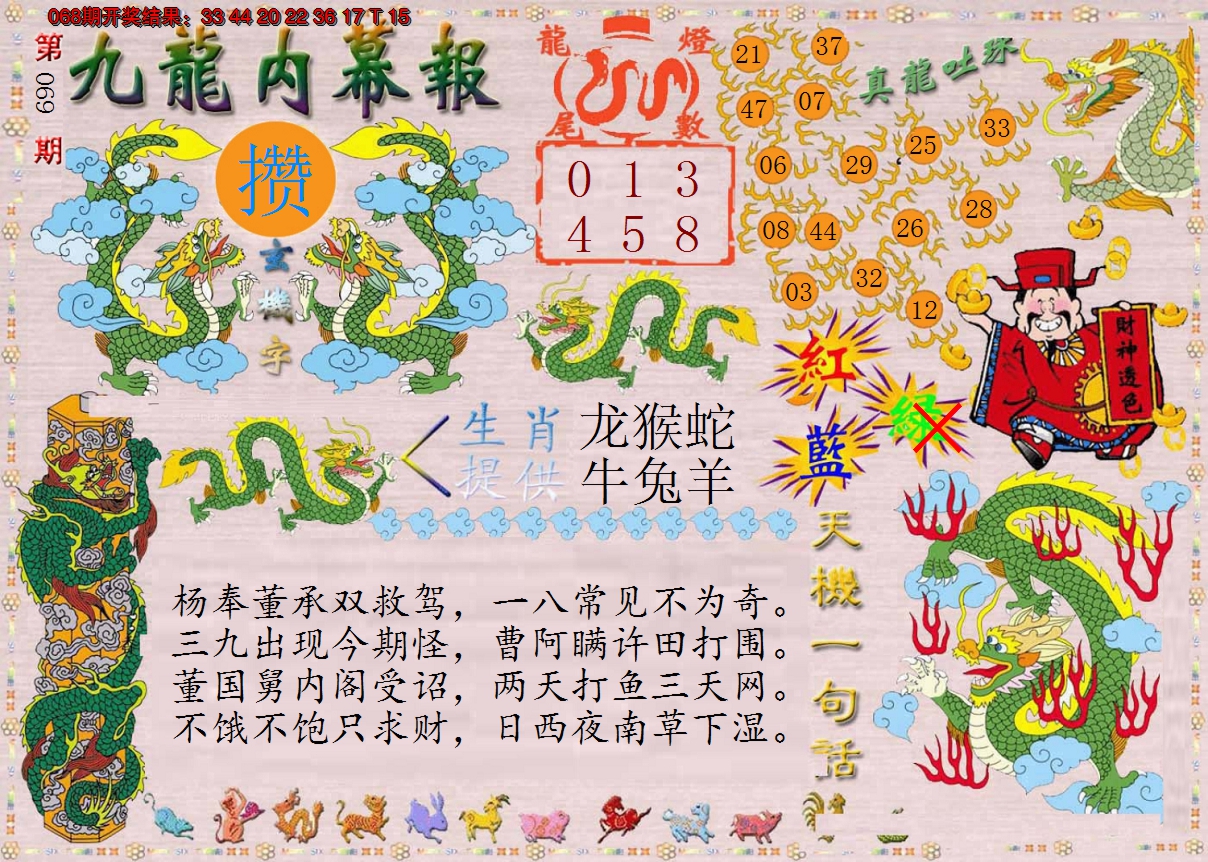 068期开奖结果：33 44 20 22 36 17 T 15
第
069
期
九龍内幕報
攒
玄
機
字
龍
燈
尾
數
0 1 3
4 5 8
真龍吐珠
21
37
47
07
06
29
25
33
08
44
26
28
03
32
12
紅
綠
藍
財神透色
生肖
提供
龙猴蛇
牛兔羊
杨奉董承双救驾，一八常见不为奇。
三九出现今期怪，曹阿瞒许田打围。
董国舅内阁受诏，两天打鱼三天网。
不饿不饱只求财，日西夜南草下湿。
天機一句话